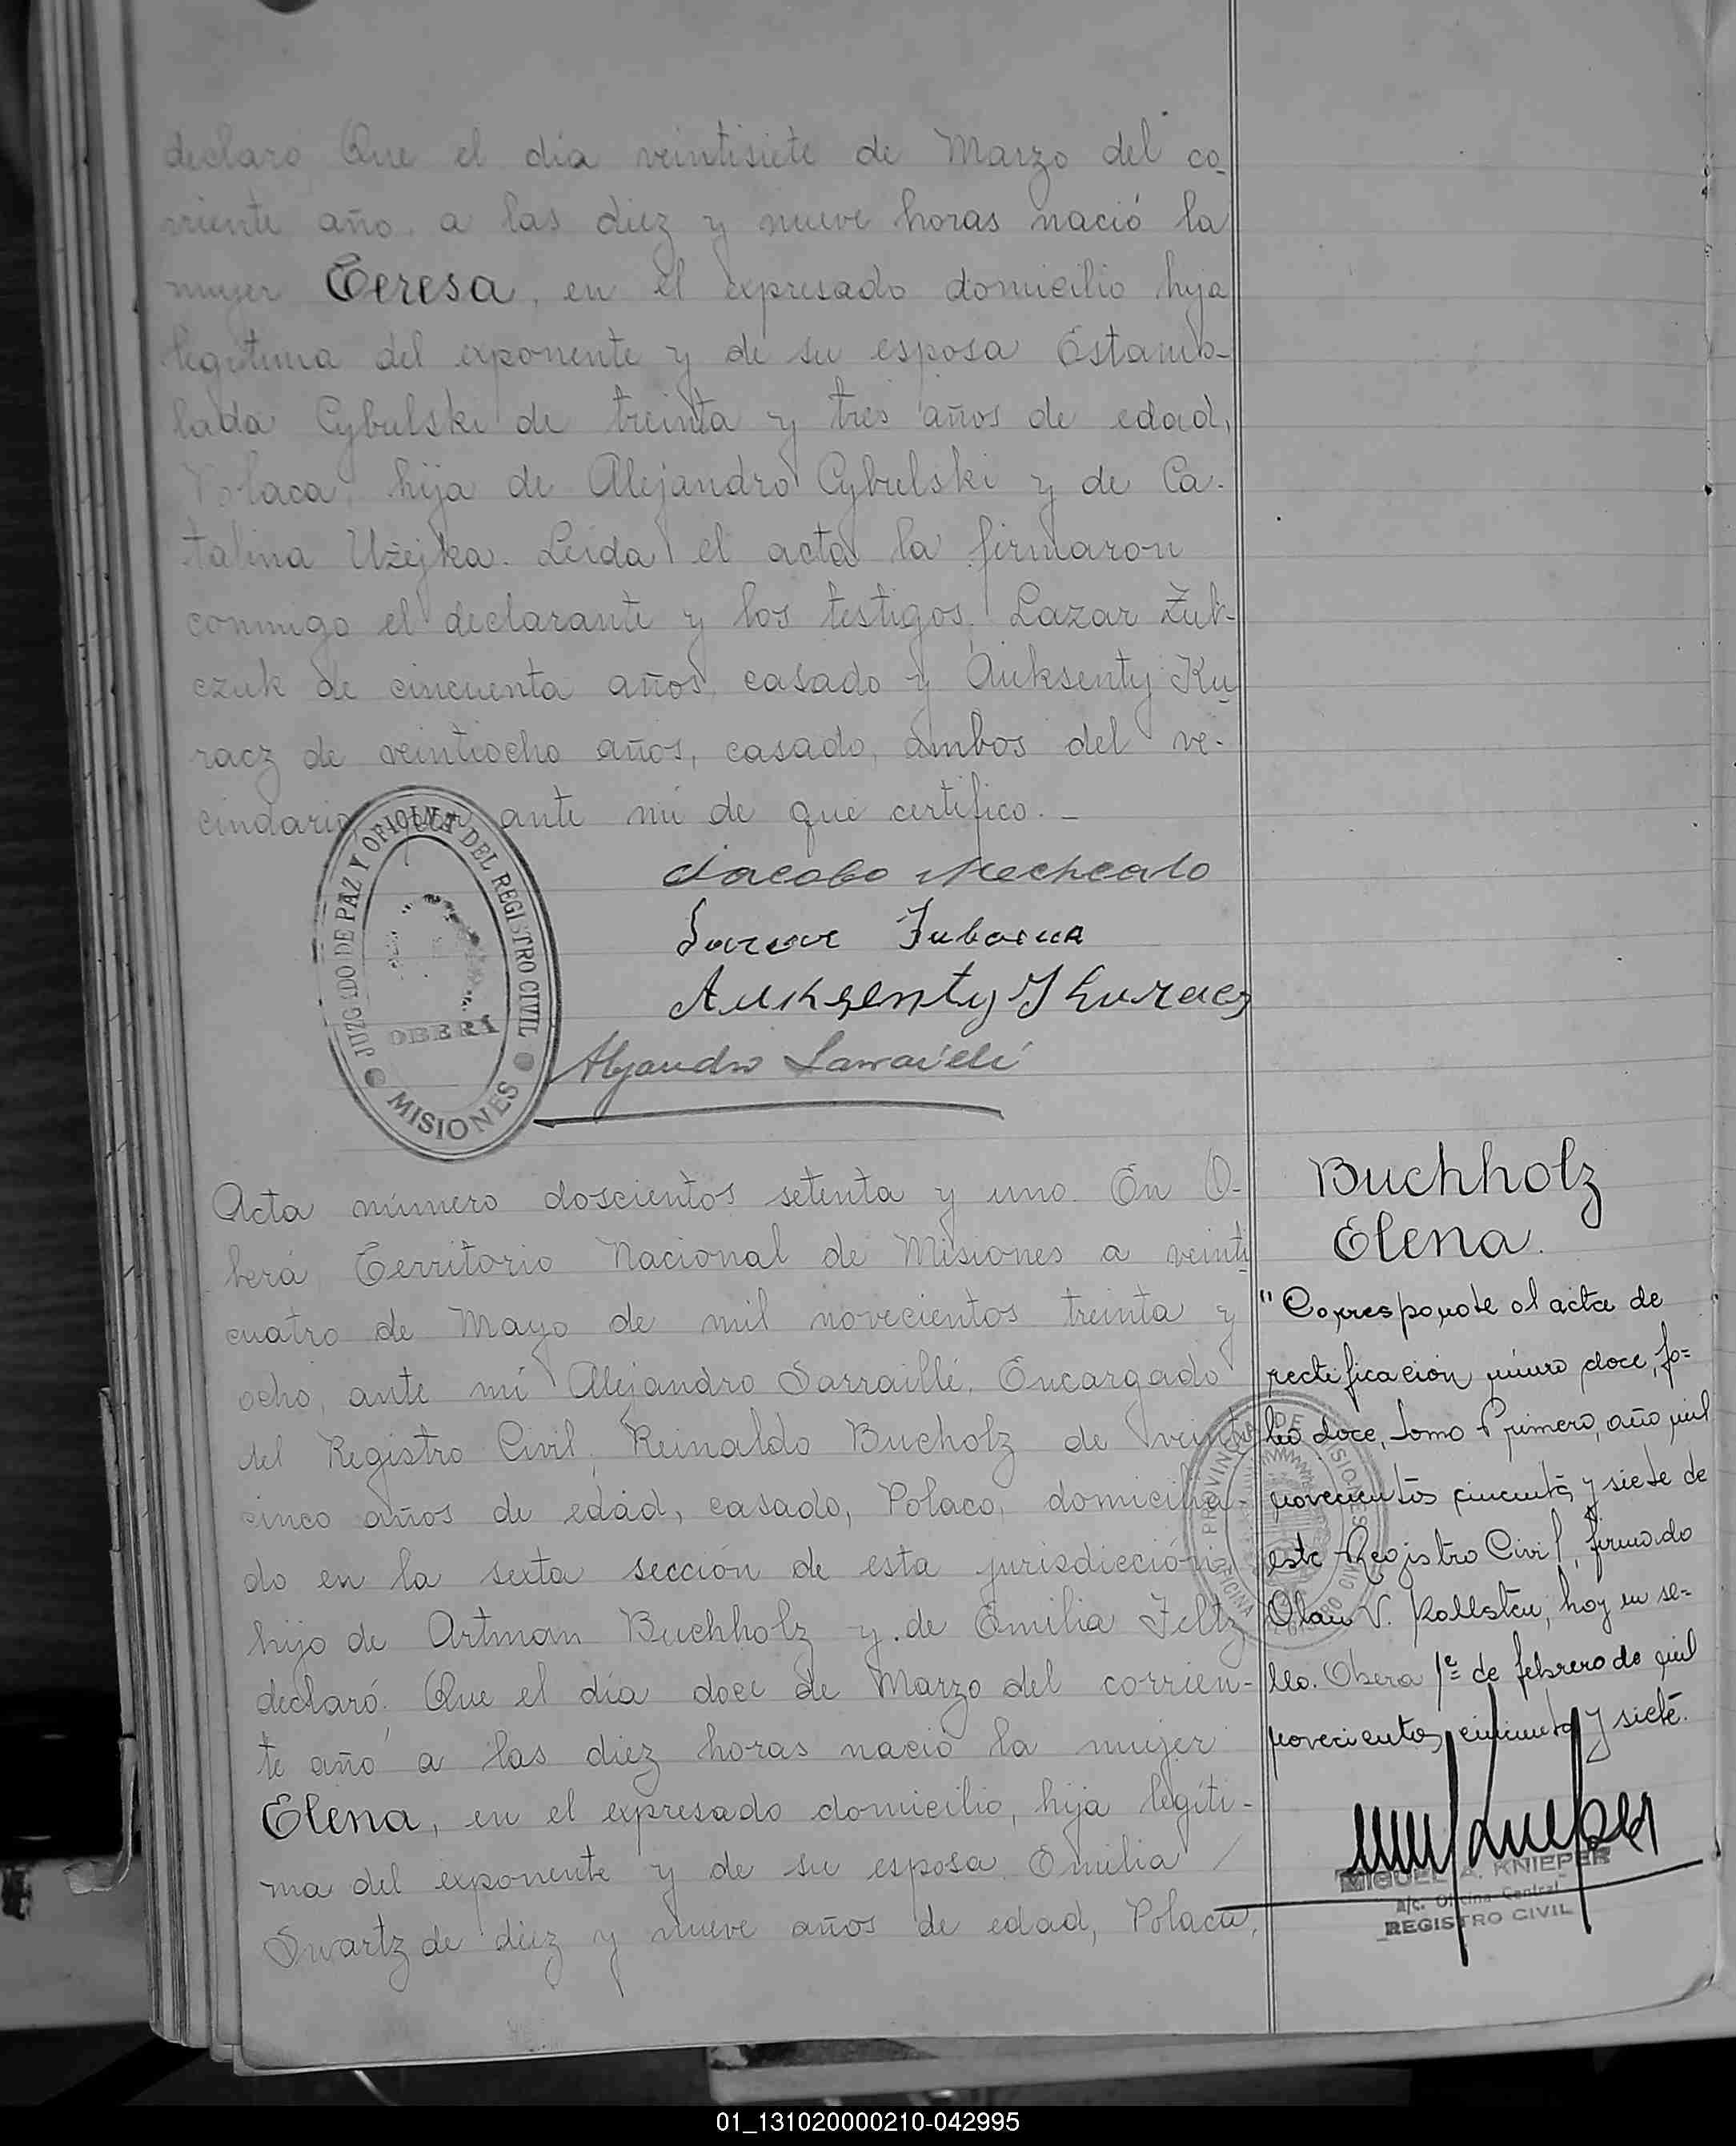 declaró Que el día veintisiete de Marzo del co-
rriente año a las diez y nueve horas nació la
mujer Teresa, en el expresado domicilio hija
legítima del exponente y de su esposa Estanis-
lada Cybulski de treinta y tres años de edad,
Polaca, hija de Alejandro Cybulski y de Ca-
talina Użejka. Leída el acta la firmaron
conmigo el declarante y los testigos, Lazar Żub-
czuk de cincuenta años, casado y Auksenty Ku-
racz de veintiocho años, casado, ambos del ve-
cindario ante mí de que certifico. —
Jacobo
Auksenty Kuracz
Alejandro Sarraillé
JUZGADO DE PAZ Y OFICINA DEL REGISTRO CIVIL
OBERÁ
MISIONES
Acta número doscientos setenta y uno. En O-
berá Territorio Nacional de Misiones a veinti-
cuatro de Mayo de mil novecientos treinta y
ocho, ante mí Alejandro Sarraillé, Encargado
del Registro Civil, Reinaldo Bucholz de veinti
cinco años de edad, casado, Polaco, domicilia-
do en la sexta sección de esta jurisdicción,
hijo de Artman Buchholz y de Emilia Feltz
declaró: Que el día doce de Marzo del corrien-
te año a las diez horas nació la mujer
Elena, en el expresado domicilio, hija legíti-
ma del exponente y de su esposa Emilia
Swartz de diez y nueve años de edad, Polaca,
Buchholz
Elena.
"Corresponde al acta de
rectificación número doce, fo=
lio doce, tomo Primero, año mil
novecientos cincuenta y siete de
este Registro Civil, firmado
Olau V. Kallsten, hoy en se=
llo. Obera 1º de febrero de mil
novecientos cincuenta y siete.
PROVINCIA DE MISIONES
OFICINA
MIGUEL A. KNIEPER
a/c. Oficina Central
REGISTRO CIVIL
01_131020000210-042995